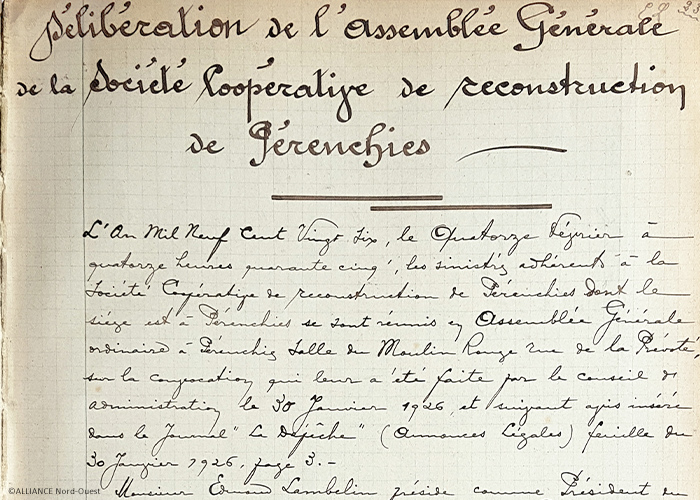 Délibération de l'Assemblée Générale
de la Société Coopérative de reconstruction
de Pérenchies
L'An Mil Neuf Cent Vingt Six, le Quatorze Février à
quatorze heures quarante cinq, les sinistrés adhérents à la
Société Coopérative de reconstruction de Pérenchies dont le
siège est à Pérenchies se sont réunis en Assemblée Générale
ordinaire à Pérenchies Salle du Moulin Rouge rue de la Prévoté,
sur la convocation qui leur a été faite par le conseil d
administration le 30 Janvier 1926, et suivant avis inséré
dans le Journal "La Dépêche" (Annonces Légales) feuille du
30 Janvier 1926, page 3.-
Monsieur Edouard Lambelin préside comme Président du
©ALLIANCE Nord-Ouest